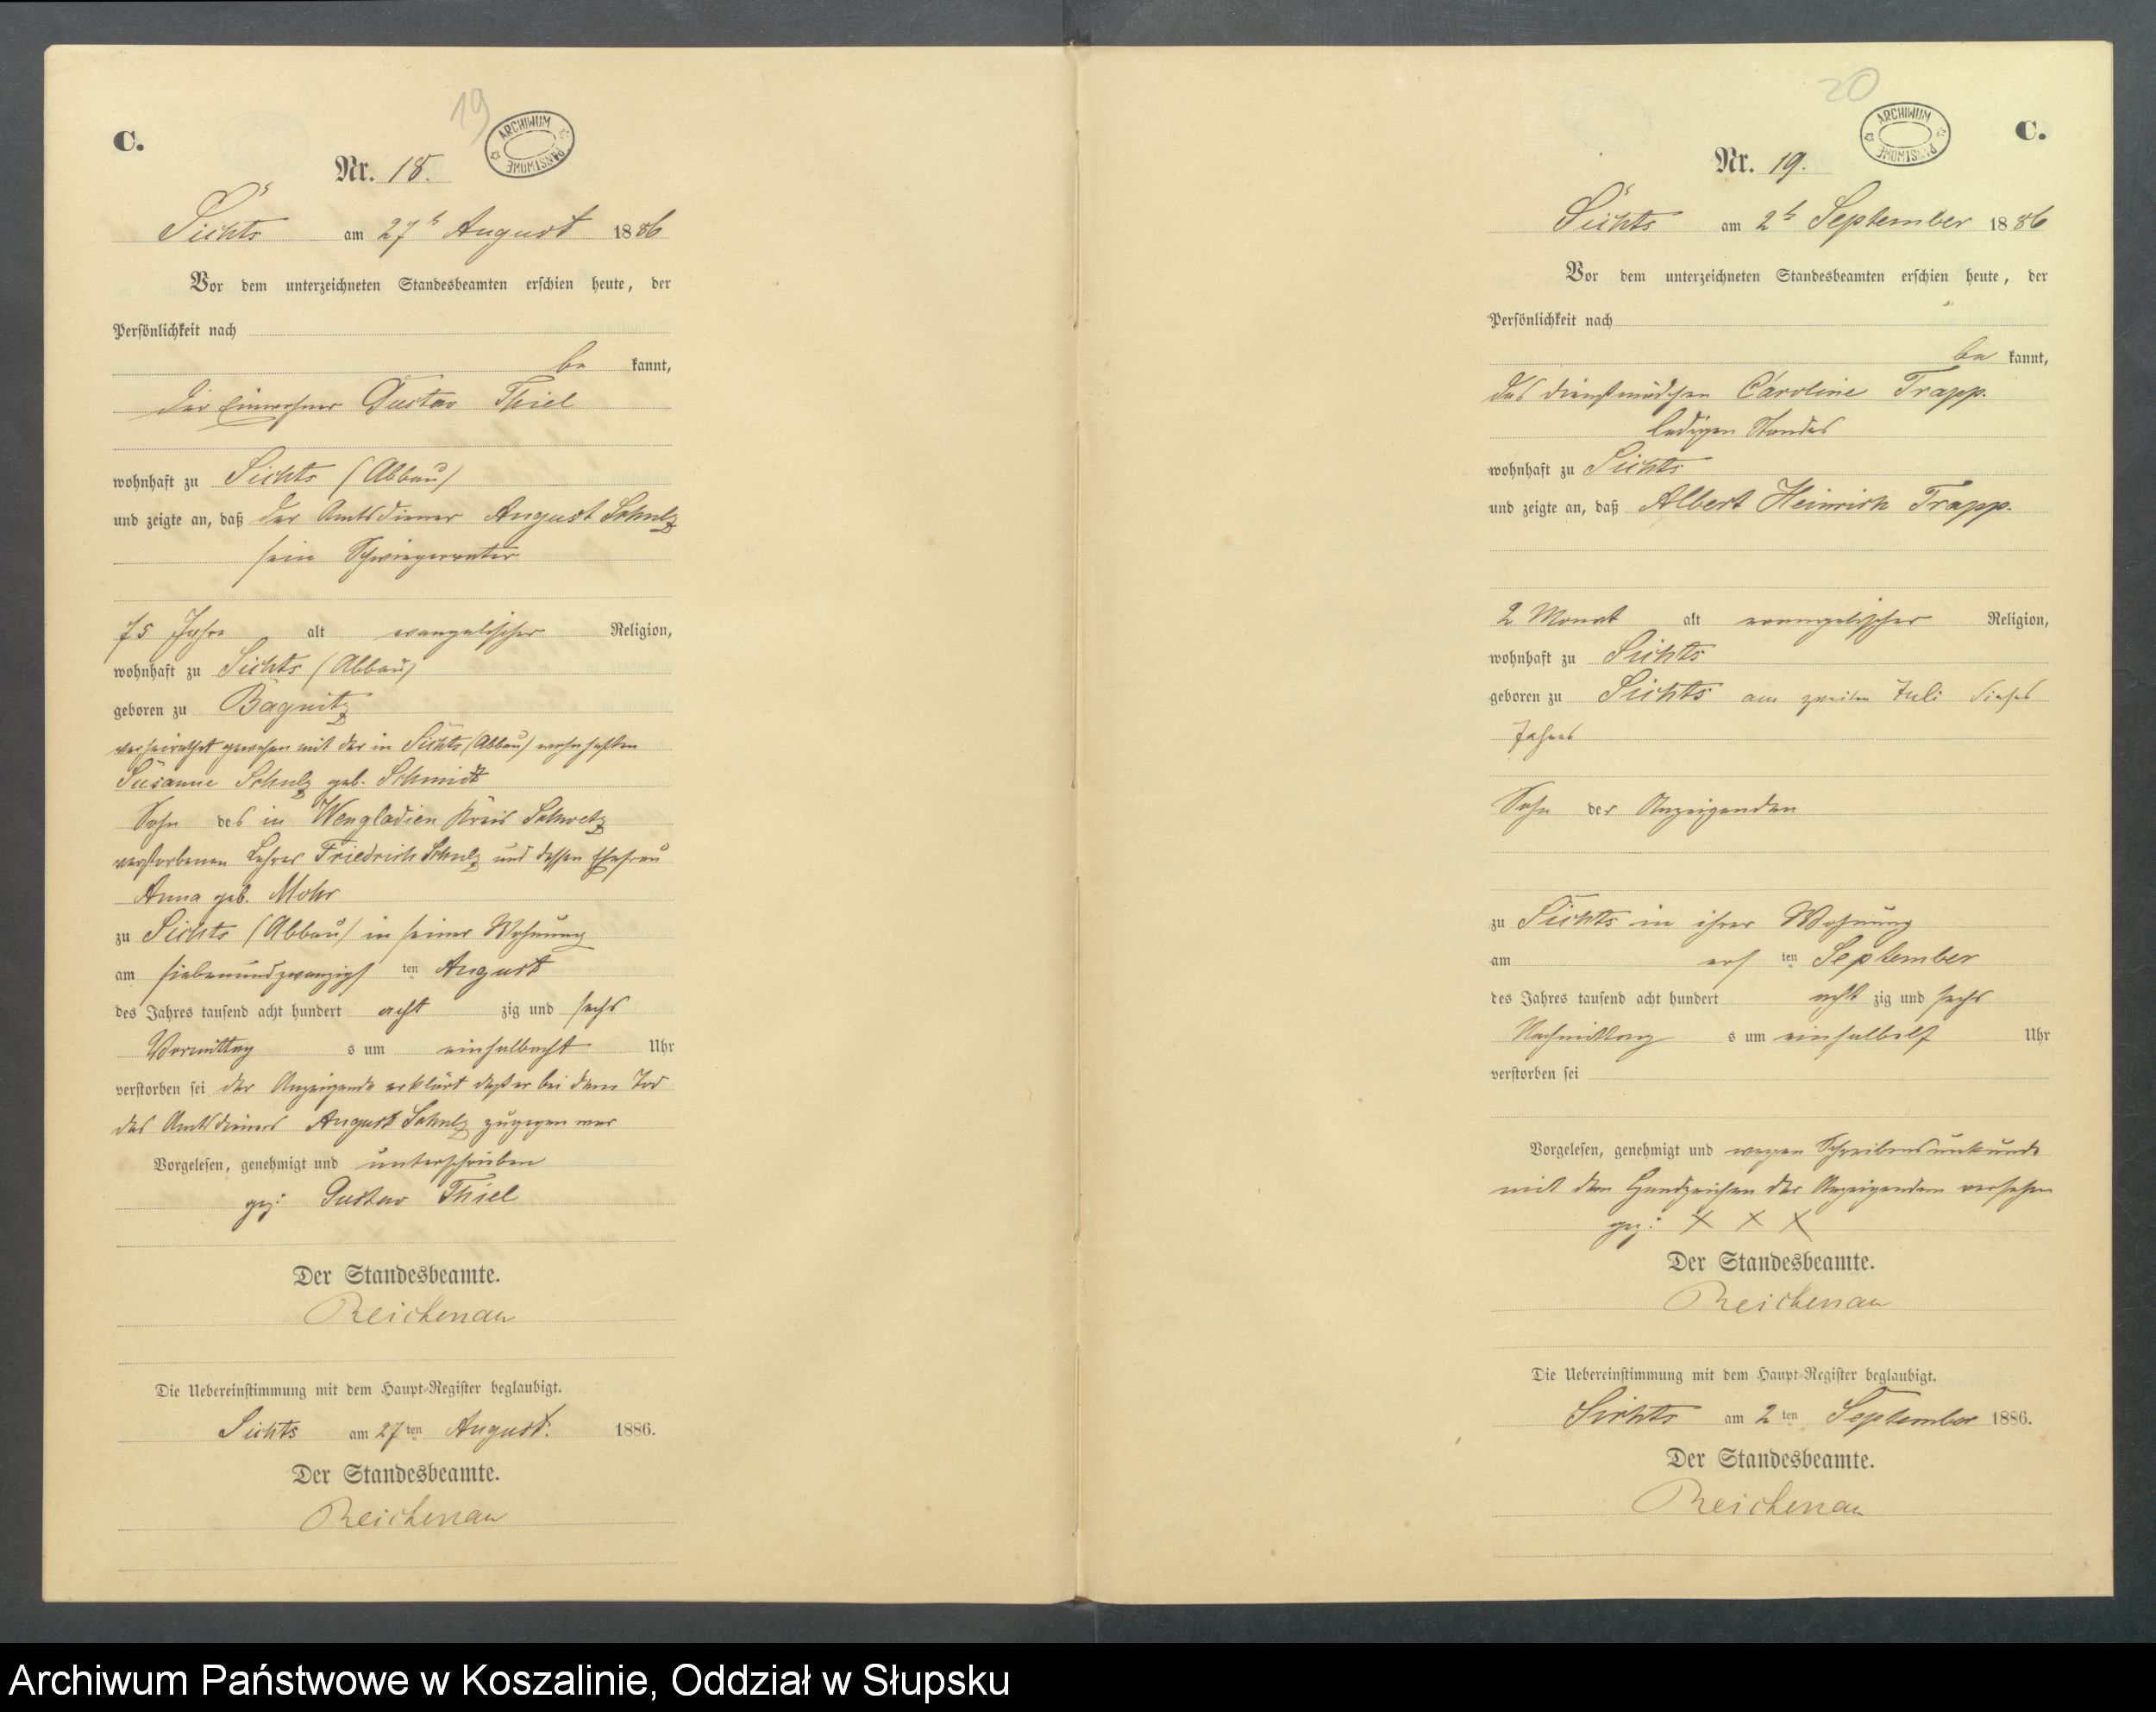 19
C.
ARCHIWUM PAŃSTWOWE
Nr. 18.
Sichts am 27t August 1886
Vor dem unterzeichneten Standesbeamten erschien heute, der
Persönlichkeit nach
be kannt,
der Einwohner Gustav Thiel
wohnhaft zu Sichts (Abbau)
und zeigte an, daß der Amtsdiener August Schulz
sein Schwiegervater
75 Jahre alt evangelischer Religion,
wohnhaft zu Sichts (Abbau)
geboren zu Bagnitz
verheirathet gewesen mit der in Sichts (Abbau) wohnhaften
Susanne Schulz geb. Schmidt
Sohn des in Wengladien Kreis Schwetz
verstorbenen Lehrer Friedrich Schulz und dessen Ehefrau
Anna geb. Mohr
zu Sichts (Abbau) in seiner Wohnung
am siebenundzwanzigs ten August
des Jahres tausend acht hundert acht zig und sechs
Vormittag s um einhalbacht Uhr
verstorben sei der Anzeigende erklärt daß er bei dem Tod
des Amtsdieners August Schulz zugegen war
Vorgelesen, genehmigt und unterschrieben
gez: Gustav Thiel
Der Standesbeamte.
Reichenau
Die Uebereinstimmung mit dem Haupt-Register beglaubigt.
Sichts am 27ten August. 1886.
Der Standesbeamte.
Reichenau
20
C.
ARCHIWUM PAŃSTWOWE
Nr. 19.
Sichts am 2t September 1886
Vor dem unterzeichneten Standesbeamten erschien heute, der
Persönlichkeit nach
be kannt,
das Dienstmädchen Caroline Trapp.
ledigen Standes
wohnhaft zu Sichts
und zeigte an, daß Albert Heinrich Trapp.
2 Monat alt evangelischer Religion,
wohnhaft zu Sichts
geboren zu Sichts am zweiten Juli dieses
Jahres
Sohn der Anzeigenden
zu Sichts in ihrer Wohnung
am ers ten September
des Jahres tausend acht hundert acht zig und sechs
Nachmittag s um einhalbelf Uhr
verstorben sei
Vorgelesen, genehmigt und wegen Schreibensunkunde
mit den Handzeichen der Anzeigenden versehen
gez: X X X
Der Standesbeamte.
Reichenau
Die Uebereinstimmung mit dem Haupt-Register beglaubigt.
Sichts am 2ten September 1886.
Der Standesbeamte.
Reichenau
Archiwum Państwowe w Koszalinie, Oddział w Słupsku